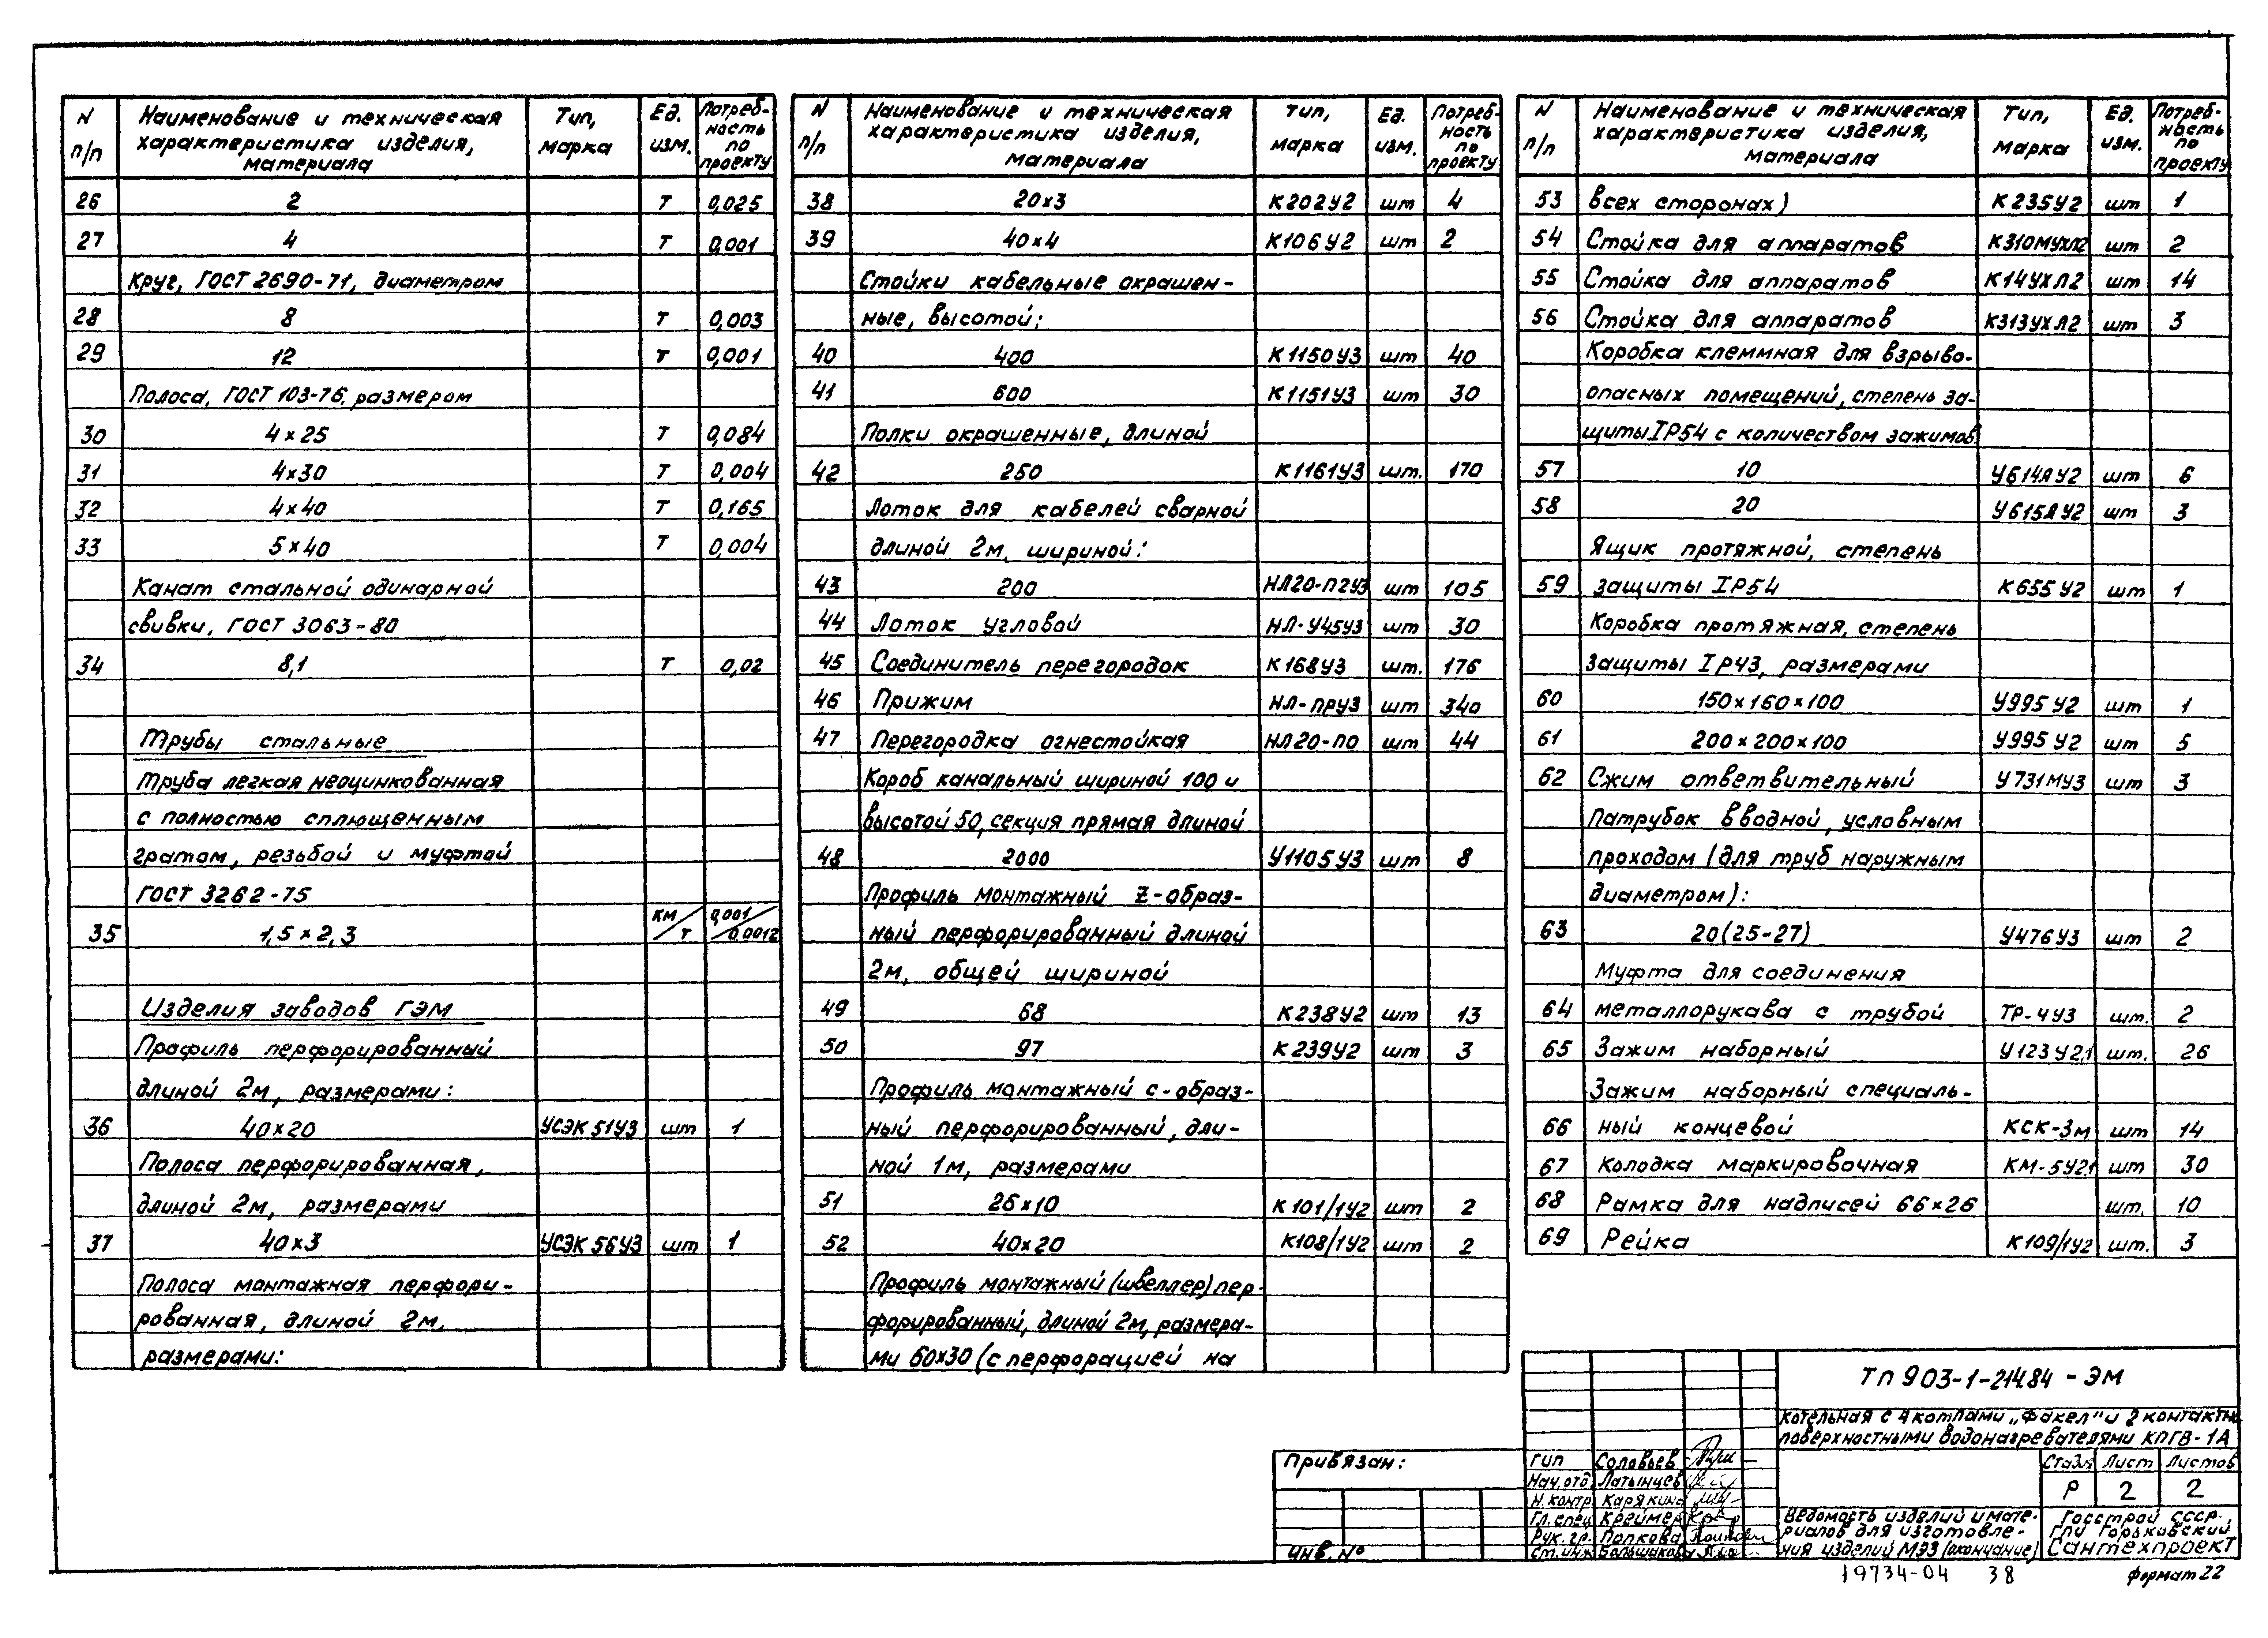 N п/п Наименование и техническая характеристика изделия, материала Тип, марка Ед. изм. Потребность по проекту
26 2 т 0,025
27 4 т 0,001
Круг, ГОСТ 2690-71, диаметром
28 8 т 0,003
29 12 т 0,001
Полоса, ГОСТ 103-76, размером
30 4×25 т 0,084
31 4×30 т 0,004
32 4×40 т 0,165
33 5×40 т 0,004
Канат стальной одинарной
свивки, ГОСТ 3063-80
34 8,1 т 0,02
Трубы стальные
Труба легкая неоцинкованная
с полностью сплющенным
гратом, резьбой и муфтой
ГОСТ 3262-75
35 1,5×2,3 км/т 0,001/0,0012
Изделия заводов ГЭМ
Профиль перфорированный
длиной 2м, размерами:
36 40×20 УСЭК 51У3 шт 1
Полоса перфорированная,
длиной 2м, размерами
37 40×3 УСЭК 56У3 шт 1
Полоса монтажная перфори-
рованная, длиной 2м,
размерами:
N п/п Наименование и техническая характеристика изделия, материала Тип, марка Ед. изм. Потребность по проекту
38 20×3 К202У2 шт 4
39 40×4 К106У2 шт 2
Стойки кабельные окрашен-
ные, высотой:
40 400 К1150У3 шт 40
41 600 К1151У3 шт 30
Полки окрашенные, длиной
42 250 К1161У3 шт. 170
Лоток для кабелей сварной
длиной 2м, шириной:
43 200 НЛ20-П2У3 шт 105
44 Лоток угловой НЛ-У45У3 шт 30
45 Соединитель перегородок К168У3 шт. 176
46 Прижим НЛ-ПРУ3 шт 340
47 Перегородка огнестойкая НЛ20-ПО шт 44
Короб канальный шириной 100 и
высотой 50, секция прямая длиной
48 2000 У1105У3 шт 8
Профиль монтажный Z-образ-
ный перфорированный длиной
2м, общей шириной
49 68 К238У2 шт 13
50 97 К239У2 шт 3
Профиль монтажный с-образ-
ный перфорированный, дли-
ной 1м, размерами
51 26×10 К101/1У2 шт 2
52 40×20 К108/1У2 шт 2
Профиль монтажный (швеллер) пер-
форированный, длиной 2м, размера-
ми 60×30 (с перфорацией на
N п/п Наименование и техническая характеристика изделия, материала Тип, марка Ед. изм. Потребность по проекту
53 всех сторонах) К235У2 шт 1
54 Стойка для аппаратов К310МУХЛ2 шт 2
55 Стойка для аппаратов К14УХЛ2 шт 14
56 Стойка для аппаратов К313УХЛ2 шт 3
Коробка клеммная для взрыво-
опасных помещений, степень за-
щиты IP54 с количеством зажимов
57 10 У614АУ2 шт 6
58 20 У615АУ2 шт 3
Ящик протяжной, степень
59 защиты IP54 К655У2 шт 1
Коробка протяжная, степень
защиты IP43, размерами
60 150×160×100 У995У2 шт 1
61 200×200×100 У995У2 шт 5
62 Сжим ответвительный У731МУ3 шт 3
Патрубок вводной, условным
проходом (для труб наружным
диаметром):
63 20(25-27) У476У3 шт 2
Муфта для соединения
64 металлорукава с трубой ТР-4У3 шт. 2
65 Зажим наборный У123У2,1 шт. 26
Зажим наборный специаль-
66 ный концевой КСК-3м шт 14
67 Колодка маркировочная КМ-5У2,1 шт 30
68 Рамка для надписей 66×26 шт. 10
69 Рейка К109/1У2 шт. 3
ТП 903-1-214.84 - ЭМ
Котельная с 4 котлами „Факел" и 2 контактно
поверхностными водонагревателями КПГВ-1А
Привязан:
Инв. №
ГИП Соловьев
Нач. отд Латынцев
Н. контр. Карякина
Гл. спец Креймер
Рук. гр. Попкова
Ст. инж Большакова
Стадия Лист Листов
Р 2 2
Ведомость изделий и мате-
риалов для изготовле-
ния изделий МЭЗ (окончание)
Госстрой СССР,
ГПИ Горьковский
Сантехпроект
19734-04 38
Формат 22